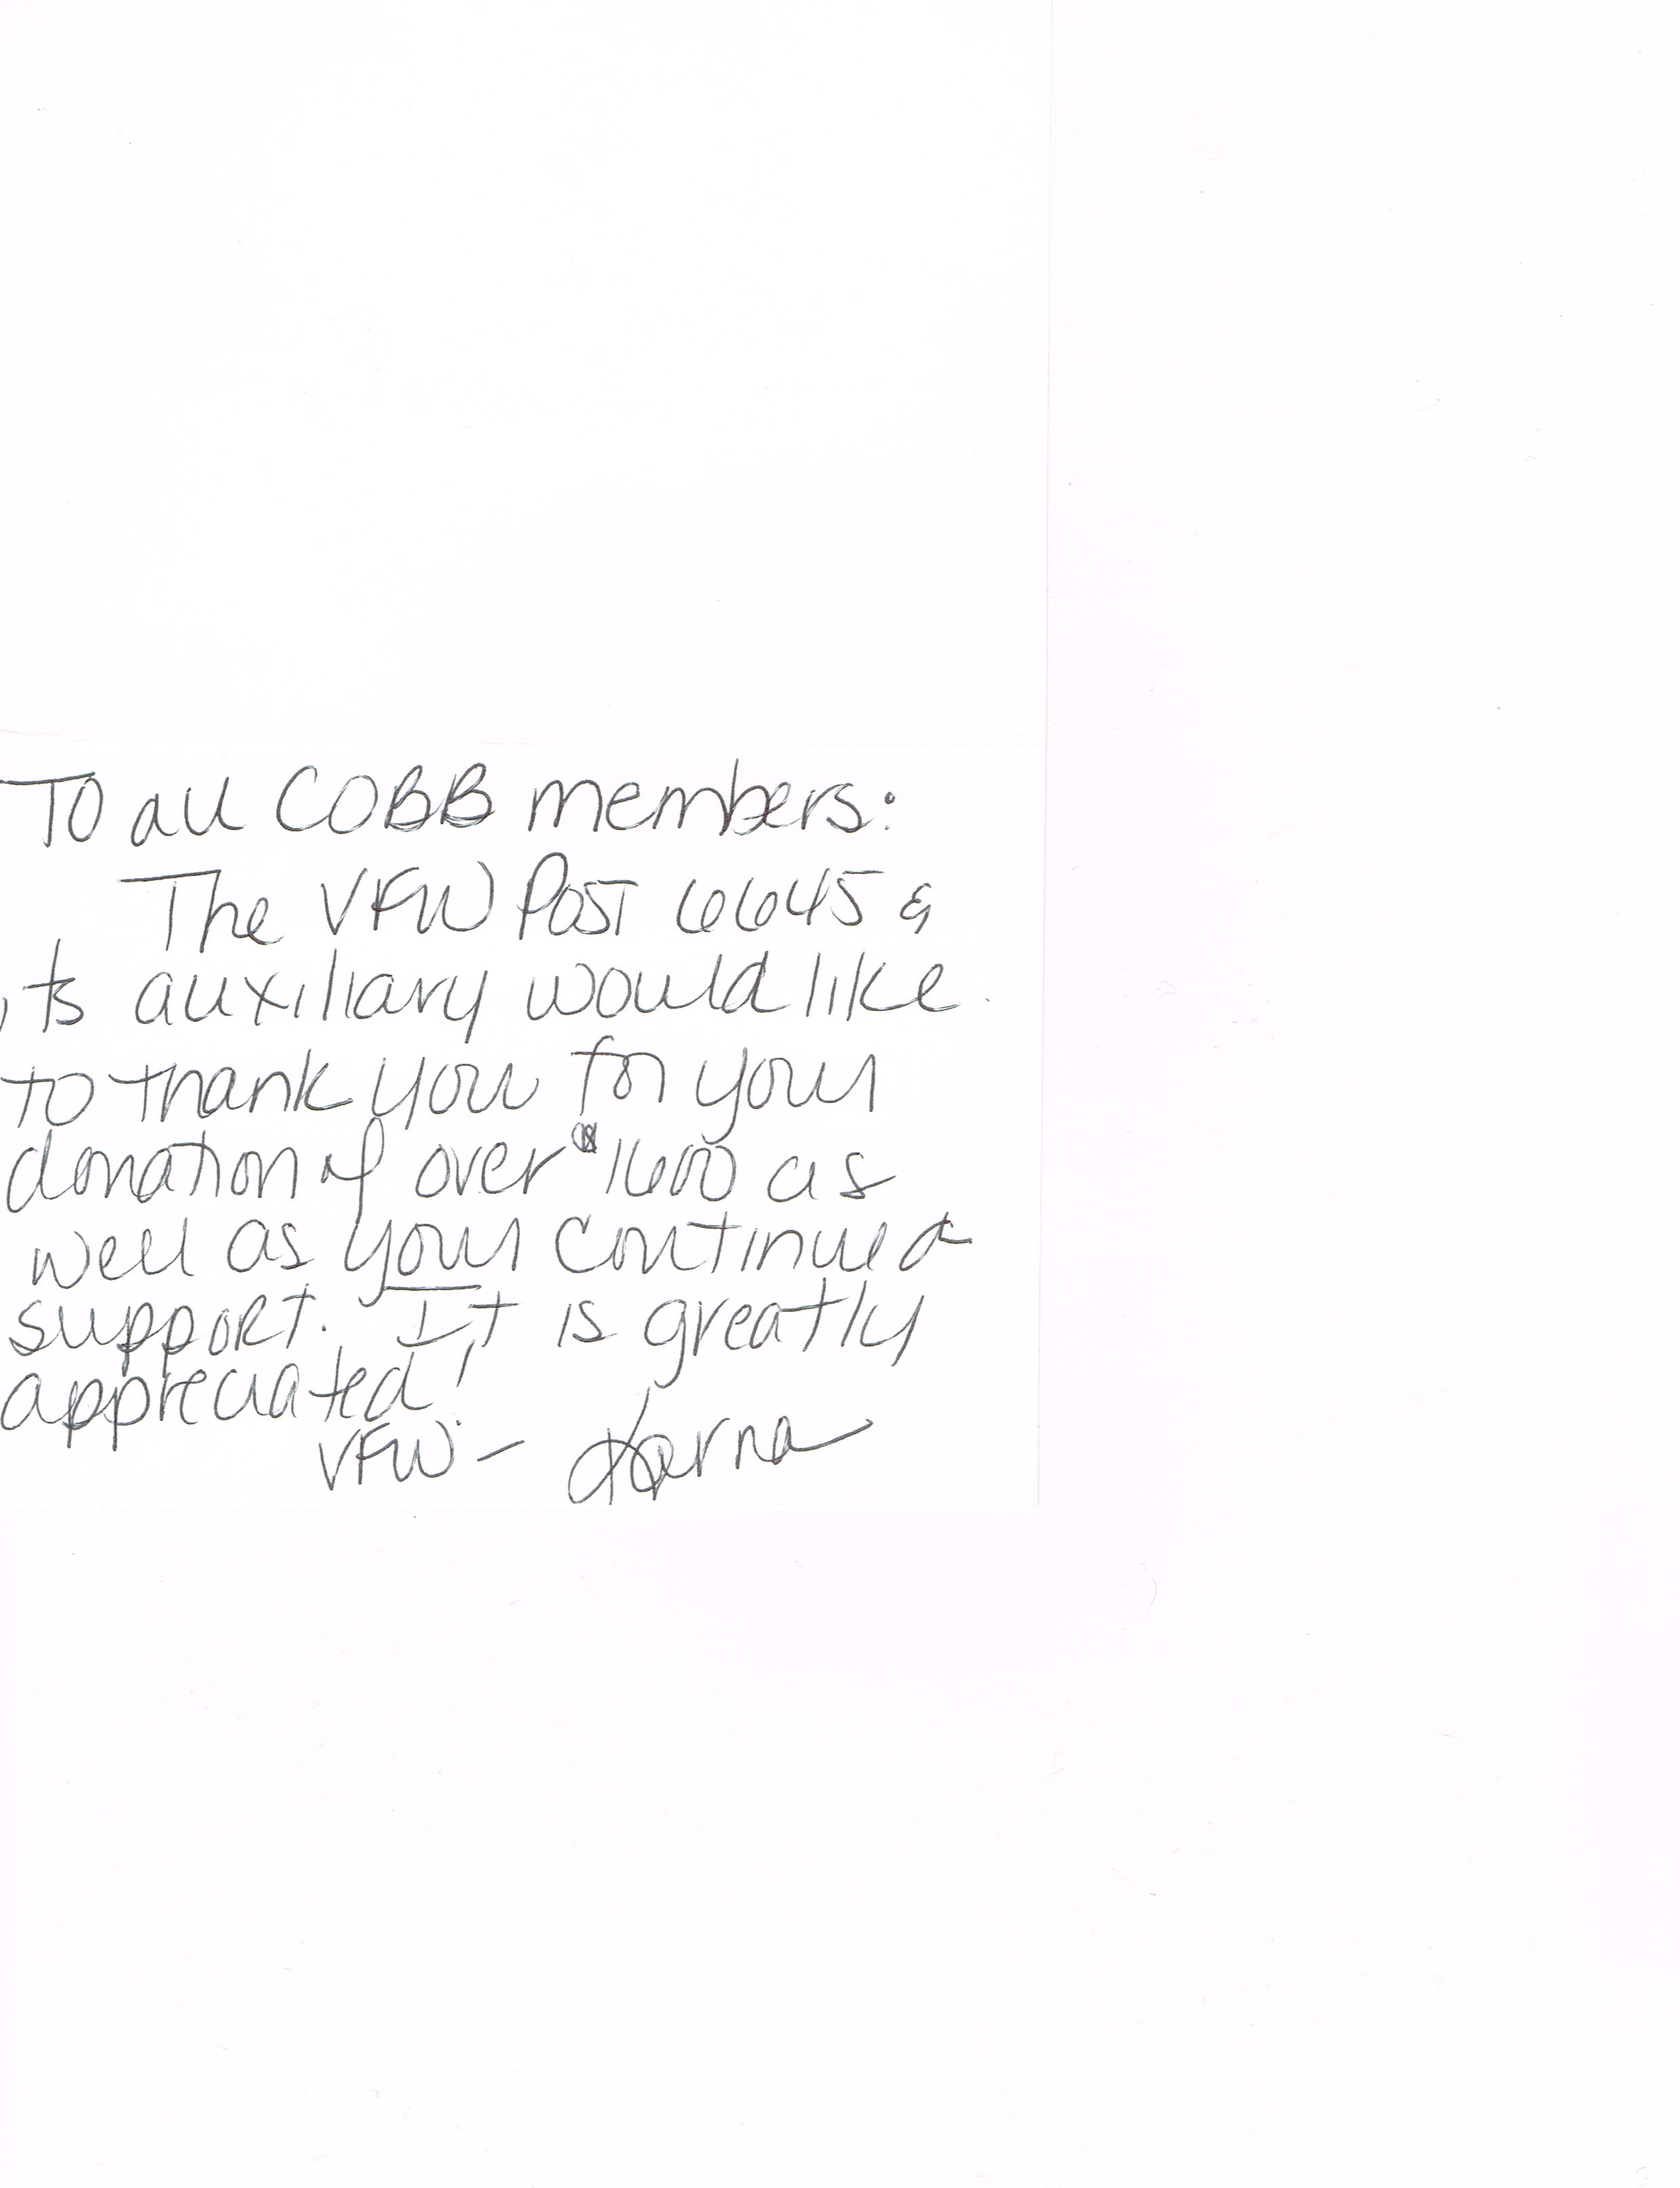 To all COBB members:
The VFW Post 6645 &
its auxiliary would like
to thank you for your
donation of over $1600 as
well as your continued
support. It is greatly
appreciated!
VFW -